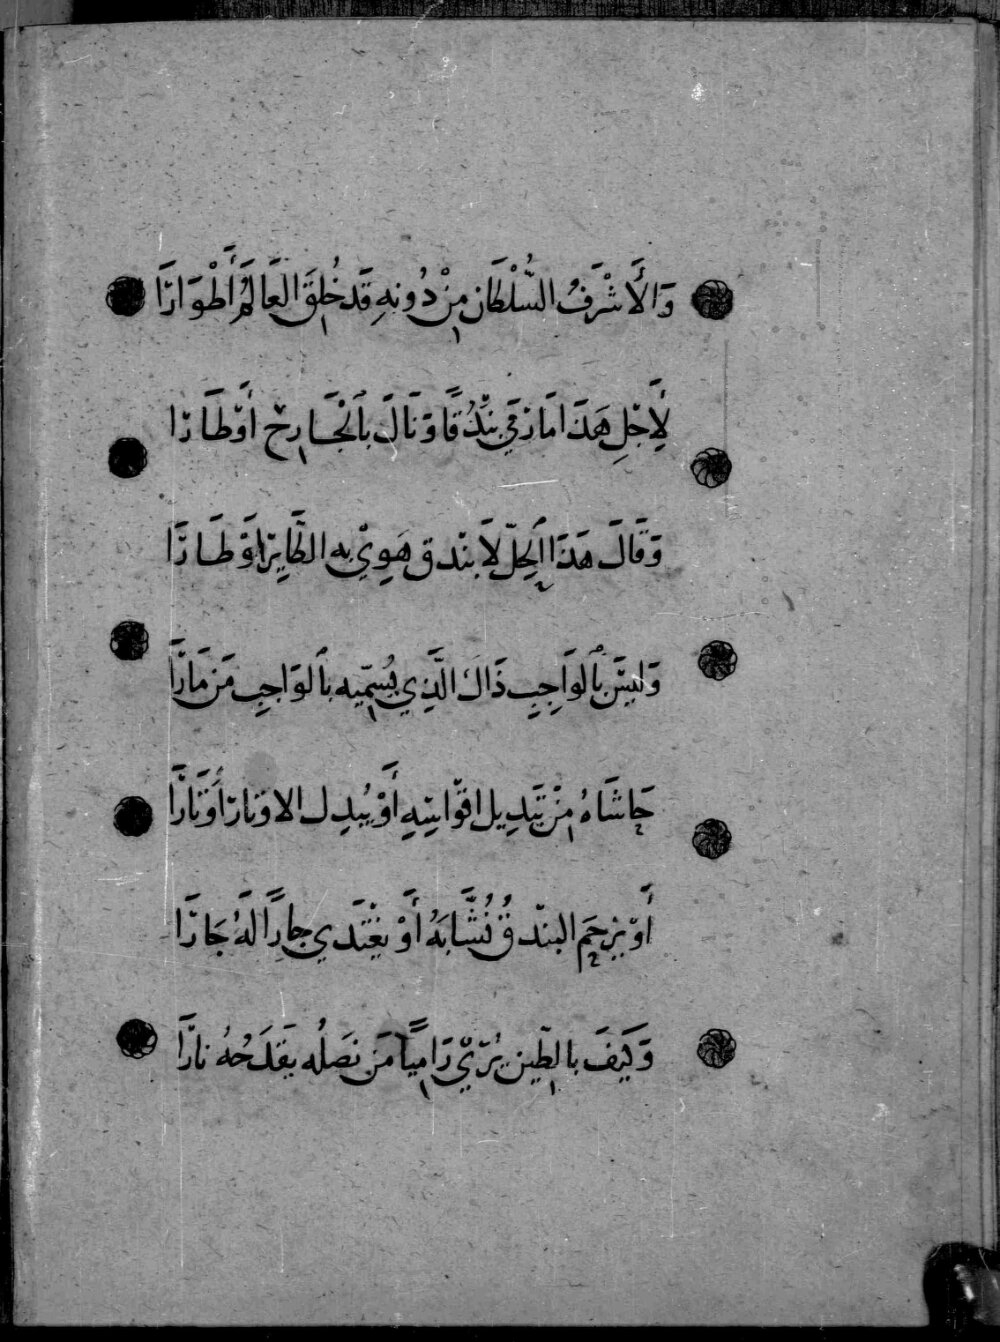 وَالأَشْرَفُ السُّلْطَان مِنْ دُونهِ قَد خُلِقَ العَالَمُ أَطْوَارَا
لِأَجْلِ هَذَا مَا رَمَى بنْدُقًا وَنَالَ بِالْجَارِحِ أَوْطَارَا
وَقَالَ هَذَا الحِلّ لَا بنْدق هَوِيْ بهِ الطَّايِرُ أَوْ طَارَا
وَلَيسَ بِالوَاجِبِ ذَاكَ الَّذِي يُسَمِّيه بالوَاجِبِ مَن مَارَا
حَاشَاهُ مِنْ تَبْدِيل قَوَّاسِهِ أَوْ يُبدِل الاوتَار أَوْتَارَا
أَوْ يَزحَم البنْدقُ نُشَّابَهُ أَوْ يغْتَدي جارًا لَهُ جَارَا
وَكَيفَ بالطّينِ يُرَيْ رَامِيًا مَن نَصلُه يَقدَحُهُ نارَا